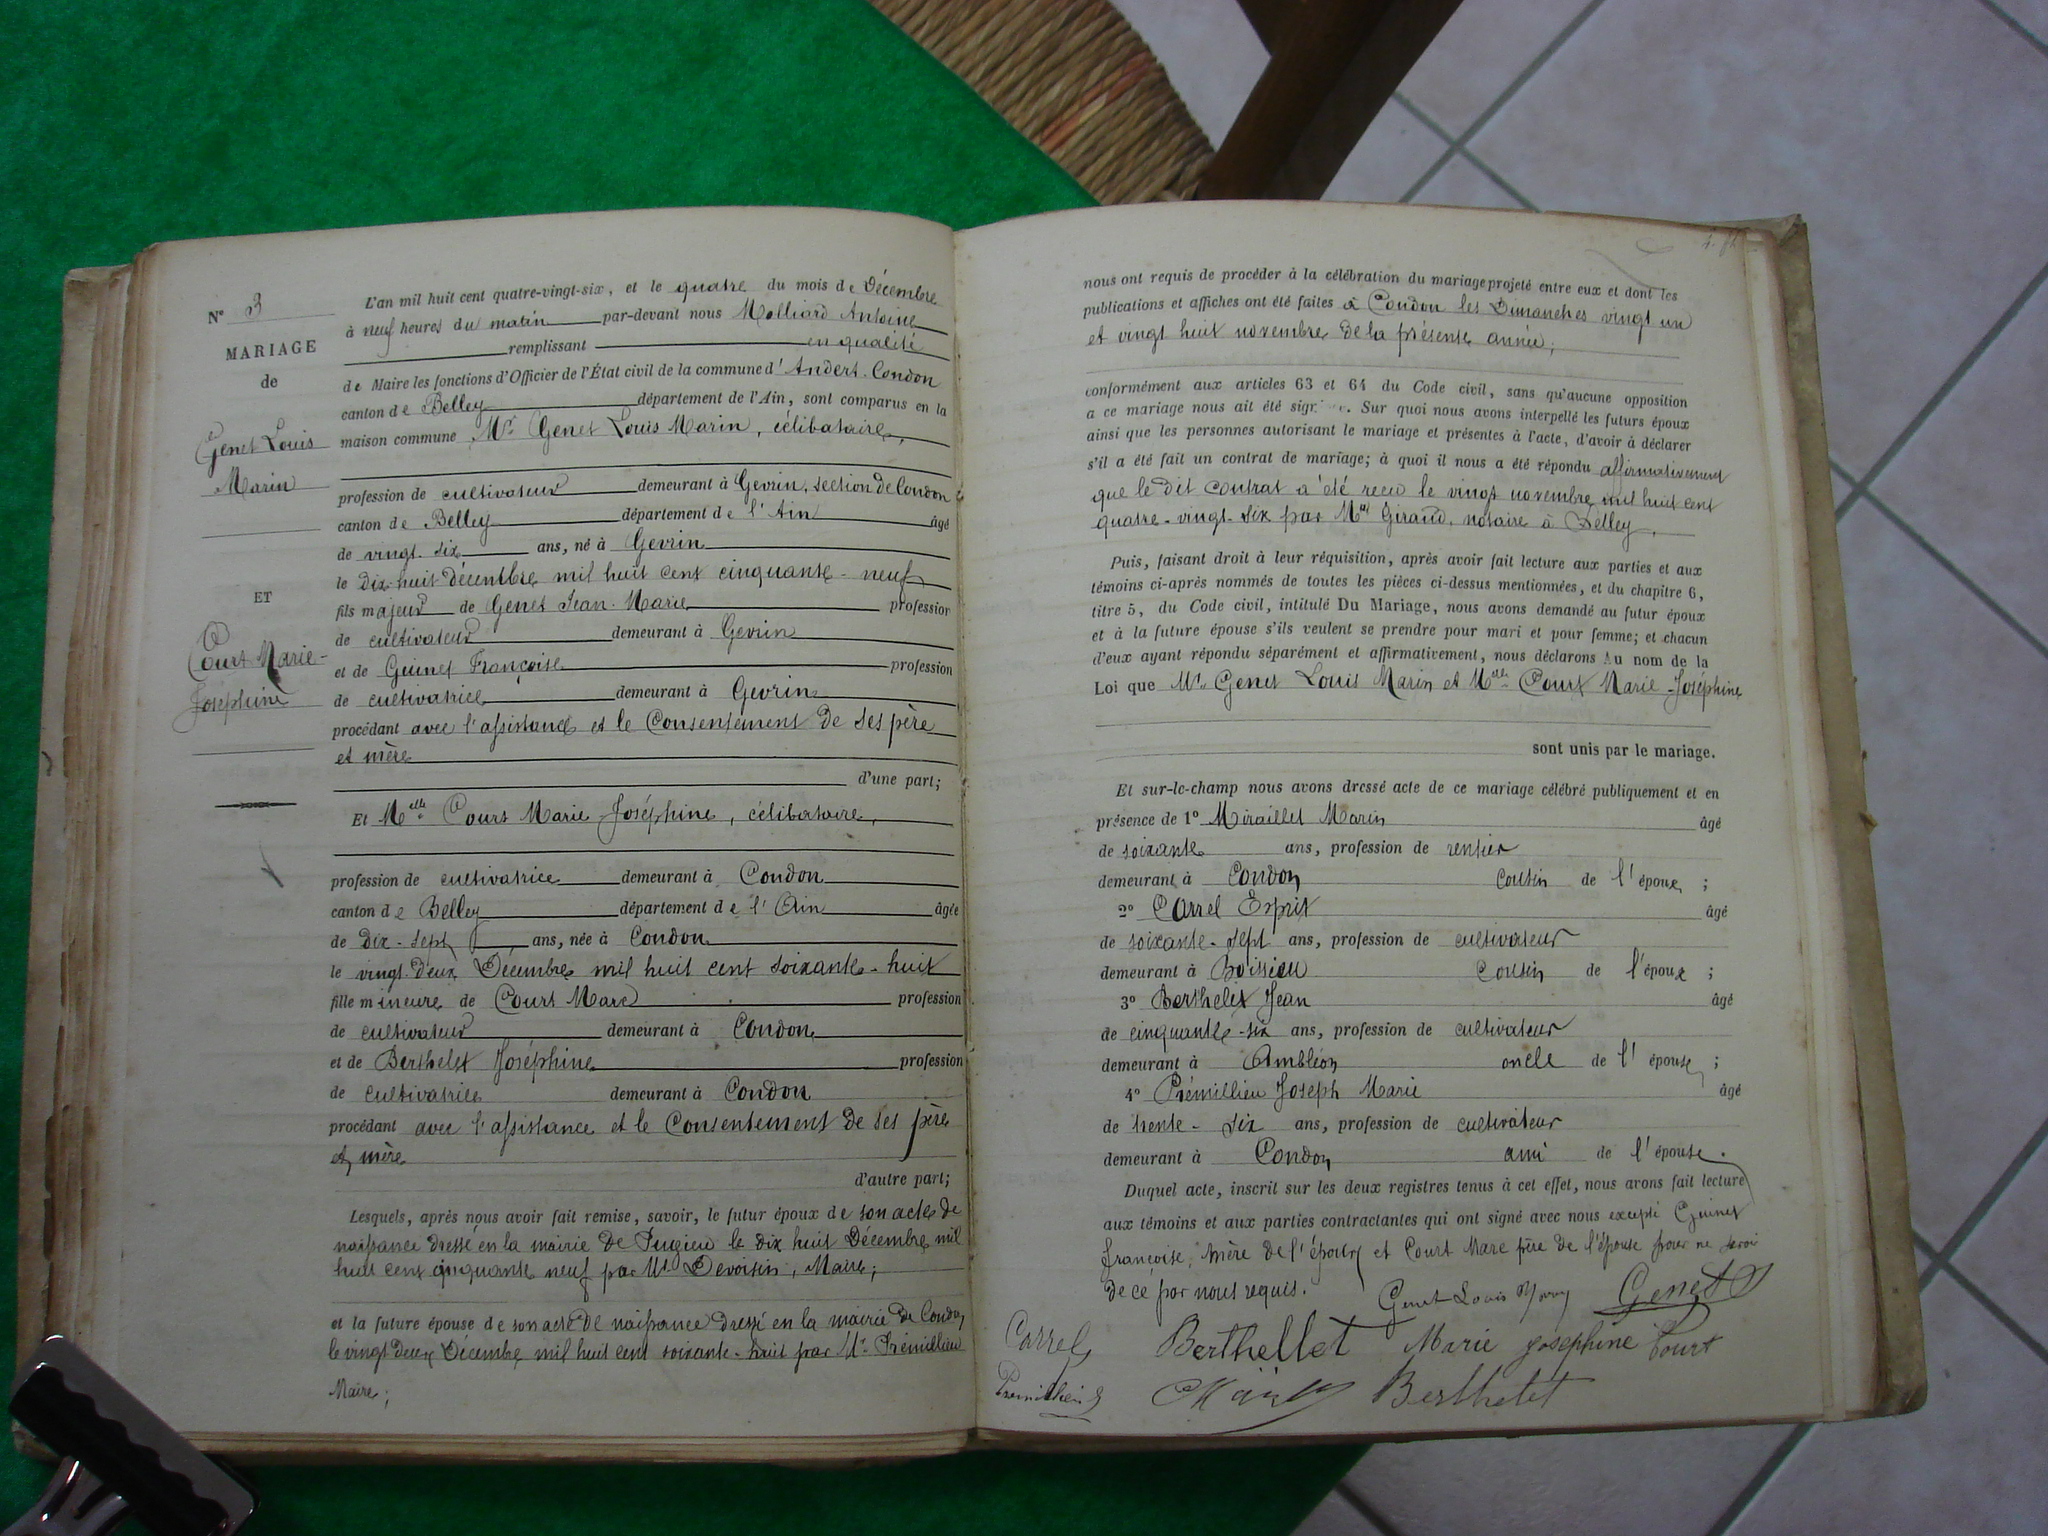 N° 3
MARIAGE
de
Genet Louis
Marin
ET
Court Marie-
Joséphine
L'an mil huit cent quatre-vingt-six, et le quatre du mois de Décembre
à neuf heures du matin par-devant nous Molliard Antoine
remplissant en qualité
de Maire les fonctions d'Officier de l'État civil de la commune d'Andert-Condon
canton de Belley département de l'Ain, sont comparus en la
maison commune Mr Genet Louis Marin, célibataire,
profession de cultivateur demeurant à Gevrin, section de Condon
canton de Belley département de l'Ain âgé
de vingt-six ans, né à Gevrin
le dix-huit décembre mil huit cent cinquante-neuf
fils majeur de Genet Jean-Marie profession
de cultivateur demeurant à Gevrin
et de Guinet Françoise profession
de cultivatrice demeurant à Gevrin
procédant avec l'assistance et le Consentement de ses père
et mère
d'une part;
Et Melle Court Marie-Joséphine, célibataire,
profession de cultivatrice demeurant à Condon
canton de Belley département de l'Ain âgée
de dix-sept ans, née à Condon
le vingt-deux Décembre mil huit cent soixante-huit
fille mineure de Court Marc profession
de cultivateur demeurant à Condon
et de Berthelet Joséphine profession
de cultivatrice demeurant à Condon
procédant avec l'assistance et le Consentement de ses père
et mère
d'autre part;
Lesquels, après nous avoir fait remise, savoir, le futur époux de son acte de
naissance dressé en la mairie de Pugieu le dix huit Décembre mil
huit cent cinquante neuf par Mr Devoisin, Maire;
et la future épouse de son acte de naissance dressé en la mairie de Condon
le vingt deux Décembre mil huit cent soixante-huit par Mr Prémillieu
Maire;
nous ont requis de procéder à la célébration du mariage projeté entre eux et dont les
publications et affiches ont été faites à Condon les Dimanches vingt un
et vingt huit novembre de la présente année;
conformément aux articles 63 et 64 du Code civil, sans qu'aucune opposition
a ce mariage nous ait été sign. Sur quoi nous avons interpellé les futurs époux
ainsi que les personnes autorisant le mariage et présentes à l'acte, d'avoir à déclarer
s'il a été fait un contrat de mariage; à quoi il nous a été répondu affirmativement
que le dit contrat a été reçu le vingt novembre mil huit cent
quatre-vingt-six par Me Giraud, notaire à Belley.
Puis, faisant droit à leur réquisition, après avoir fait lecture aux parties et aux
témoins ci-après nommés de toutes les pièces ci-dessus mentionnées, et du chapitre 6,
titre 5, du Code civil, intitulé Du Mariage, nous avons demandé au futur époux
et à la future épouse s'ils veulent se prendre pour mari et pour femme; et chacun
d'eux ayant répondu séparément et affirmativement, nous déclarons Au nom de la
Loi que Mr. Genet Louis Marin et Melle Court Marie-Joséphine
sont unis par le mariage.
Et sur-le-champ nous avons dressé acte de ce mariage célébré publiquement et en
présence de 1° Miraillet Marin âgé
de soixante ans, profession de rentier
demeurant à Condon cousin de l'époux ;
2° Carrel Esprit âgé
de soixante-sept ans, profession de cultivateur
demeurant à Boissieu cousin de l'époux ;
3° Berthelet Jean âgé
de cinquante-six ans, profession de cultivateur
demeurant à Ambléon oncle de l'épouse ;
4° Prémillieu Joseph Marie âgé
de trente-six ans, profession de cultivateur
demeurant à Condon ami de l'épouse.
Duquel acte, inscrit sur les deux registres tenus à cet effet, nous avons fait lecture
aux témoins et aux parties contractantes qui ont signé avec nous excepté Guinet
Françoise, mère de l'époux et Court Marc père de l'épouse pour ne savoir
de ce par nous requis.
Genet Louis Genet
Carrel Berthellet Marie josephine Court
Berthelet